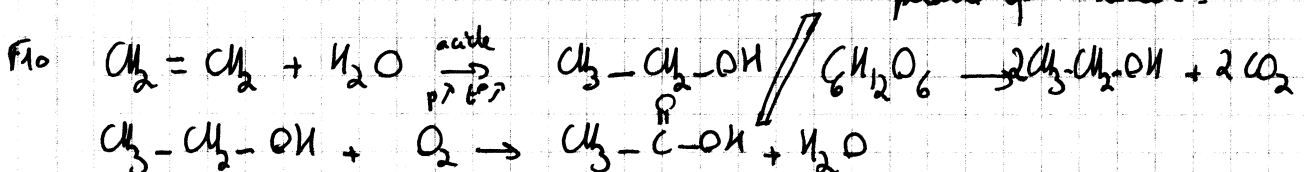 F10 CH2 = CH2 + H2O acide → p↗ t°↗ CH3 - CH2 - OH // C6H12O6 → 2CH3-CH2-OH + 2 CO2
CH3 - CH2 - OH + O2 → CH3 - C(=O) - OH + H2O